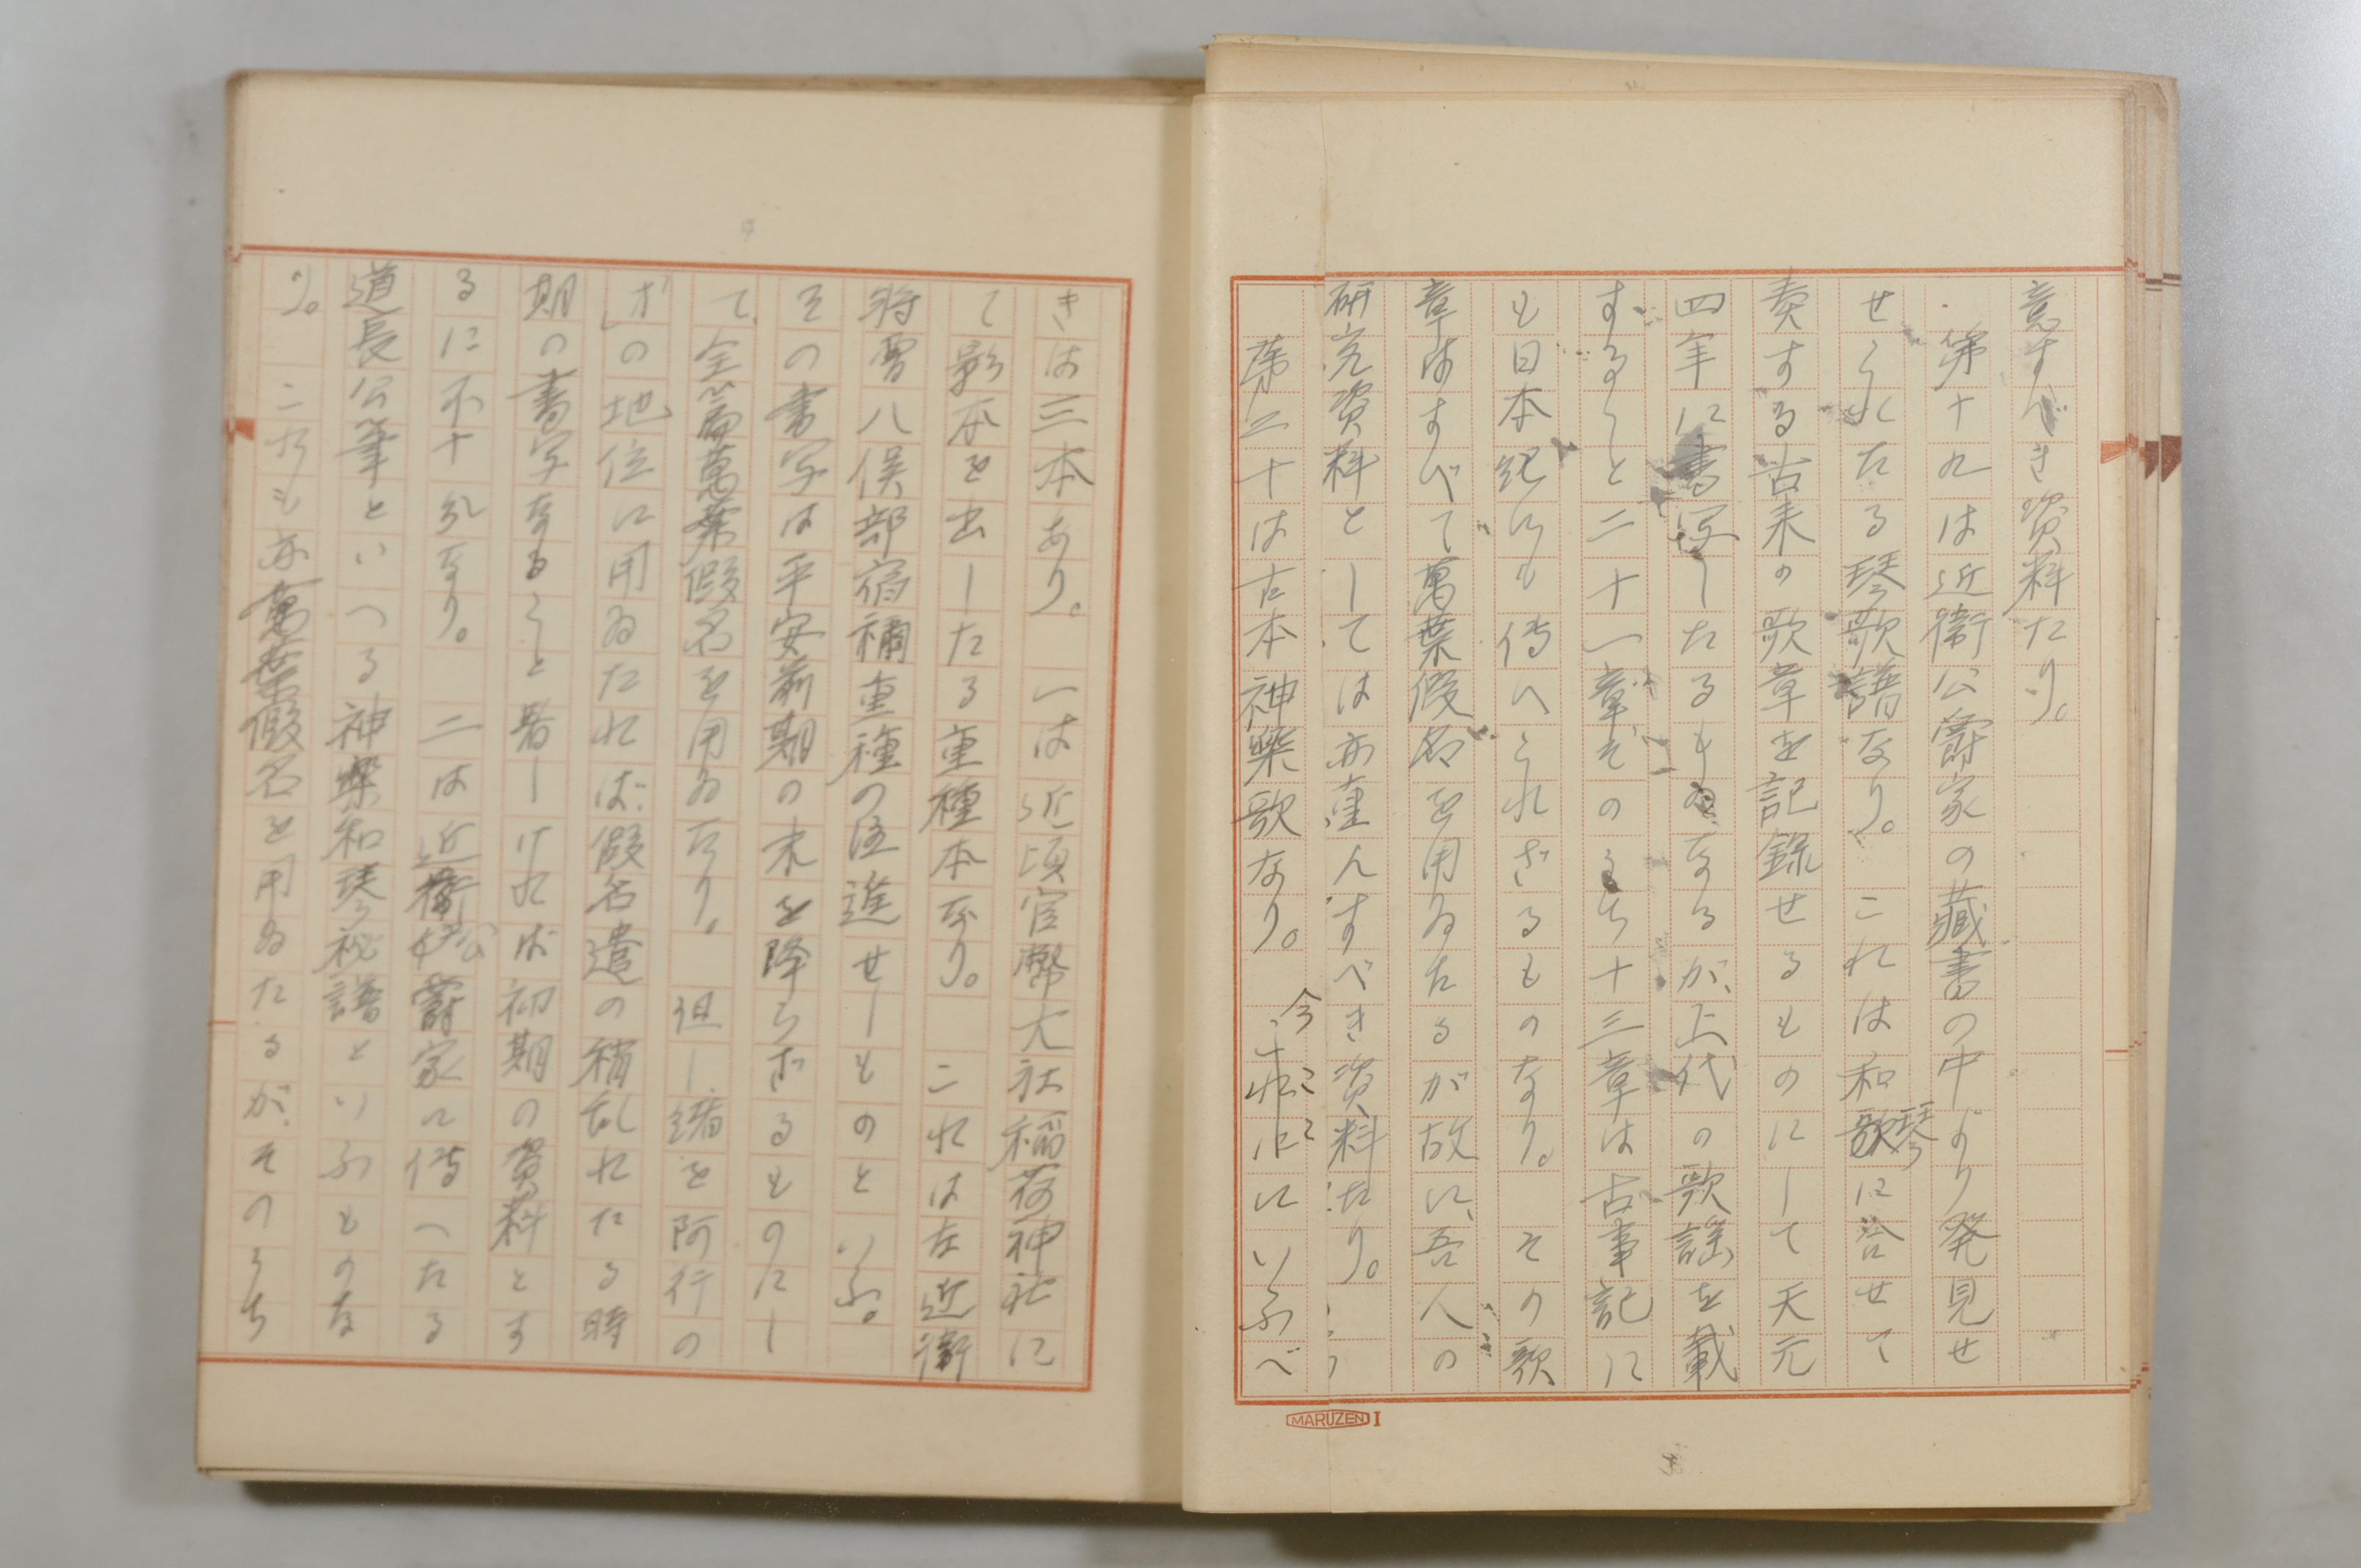 意すべき資料たり。
第十九は近衛公爵家の藏書の中より発見せ
せられたる琴歌譜なり。これは和琴に合せて
奏する古来の歌章を記録せるものにして天元
四年に書写したるものなるが、上代の歌謡を載
すること二十一章そのうち十三章は古事記に
も日本紀にも傳へられざるものなり。その歌
章はすべて萬葉假名を用ゐたるが故に、吾人の
研究資料としては亦重んすべき資料たり。
第二十は古本神樂歌なり。今ここにいふべ
MARUZEN I
きは三本あり。一は近頃官幣大社稲荷神社に
て影本を出したる重種本なり。これは左近衛
将曹八俣部宿禰重種の注進せしものといふ。
その書写は平安前期の末を降らざるものにし
て、全篇萬葉假名を用ゐたり。但し、緒を阿行の
「オ」の地位に用ゐたれば、假名遣の稍乱れたる時
期の書写なること著しければ初期の資料とす
るに不十分なり。二は近衛公爵家に傳へたる
道長公筆といへる神樂和琴秘譜といふものな
り。こたも亦萬葉假名を用ゐたるが、そのうち